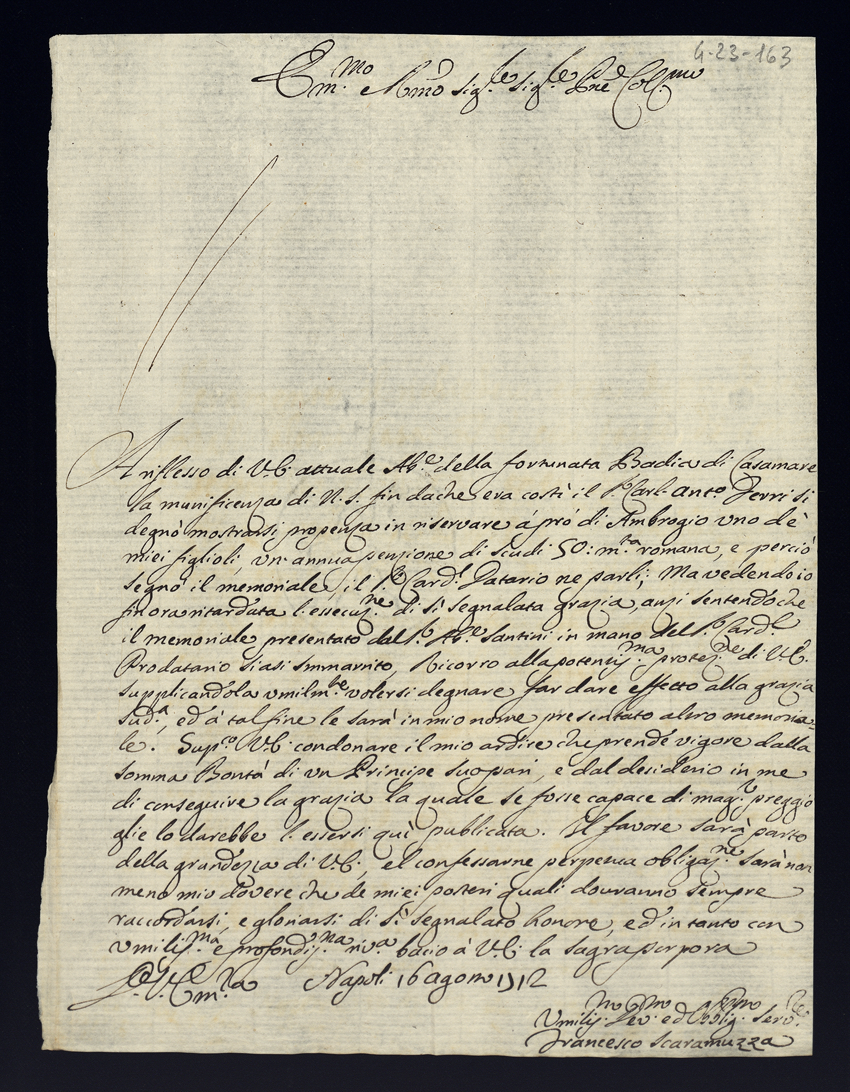 4-23-163
Em.mo Rmo Sig.re Sig.re Pne Col.mo
A riflesso di V.E. attuale Ab.e della fortunata Badia di Casamare
la munificenza di N. S. fin da che era costì il Carl. Anto.
degnò mostrarsi propenza in riservare á pró di Ambrogio uno de
miei figlioli, un annua penzione di scudi 50: m.ta romana, e perciò
segnò il memoriale, il S.r Card.l Datario ne parli; Ma vedendo io
fin ora ritardata l'essecuz.ne di sì segnalata grazia, anzi sentendo che
il memoriale presentato dal S.r Ab.e Santini in mano del S.r Card.l
Prodatario siasi smarrito, Ricorro alla potentiss.ma protez.ne di V.E.
supplicandola umilm.te volersi degnare far dare effetto alla grazia
sud.a, ed à tal fine le sarà in mio nome presentato altro memoria=
le. Sup.co V.E. condonare il mio ardire che prende vigore dalla
somma Bontà di un Principe suo pari, e dal desiderio in me
di conseguire la grazia la quale se fosse capace di mag.r preggio
glie lo darebbe l'essersi quì publicata. Il favore sarà parto
della grandezza di V.E., el confessarne perpetua obligaz.ne sarà non
meno mio dovere che de miei posteri quali douranno sempre
raccordarsi, e gloriarsi di sì segnalato honore, ed in tanto con
umiliss.ma e profondiss.ma riv.a bacio à V.E. la sagra porpora
Di V.E. Em.za Napoli 16 agosto 1712
Umiliss.mo Dev.mo ed Obblig.mo Serv.re
Francesco Scaramuzza